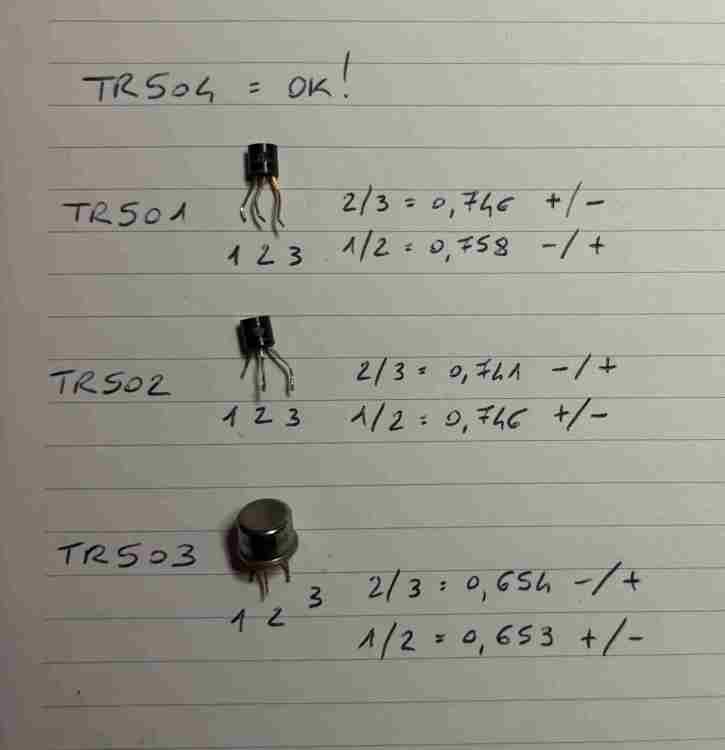 TR504 = OK!
TR501
2/3 = 0,746 +/-
1/2 = 0,758 -/+
1 2 3
TR502
2/3 = 0,741 -/+
1/2 = 0,746 +/-
1 2 3
TR503
2/3 = 0,654 -/+
1/2 = 0,653 +/-
1 2 3